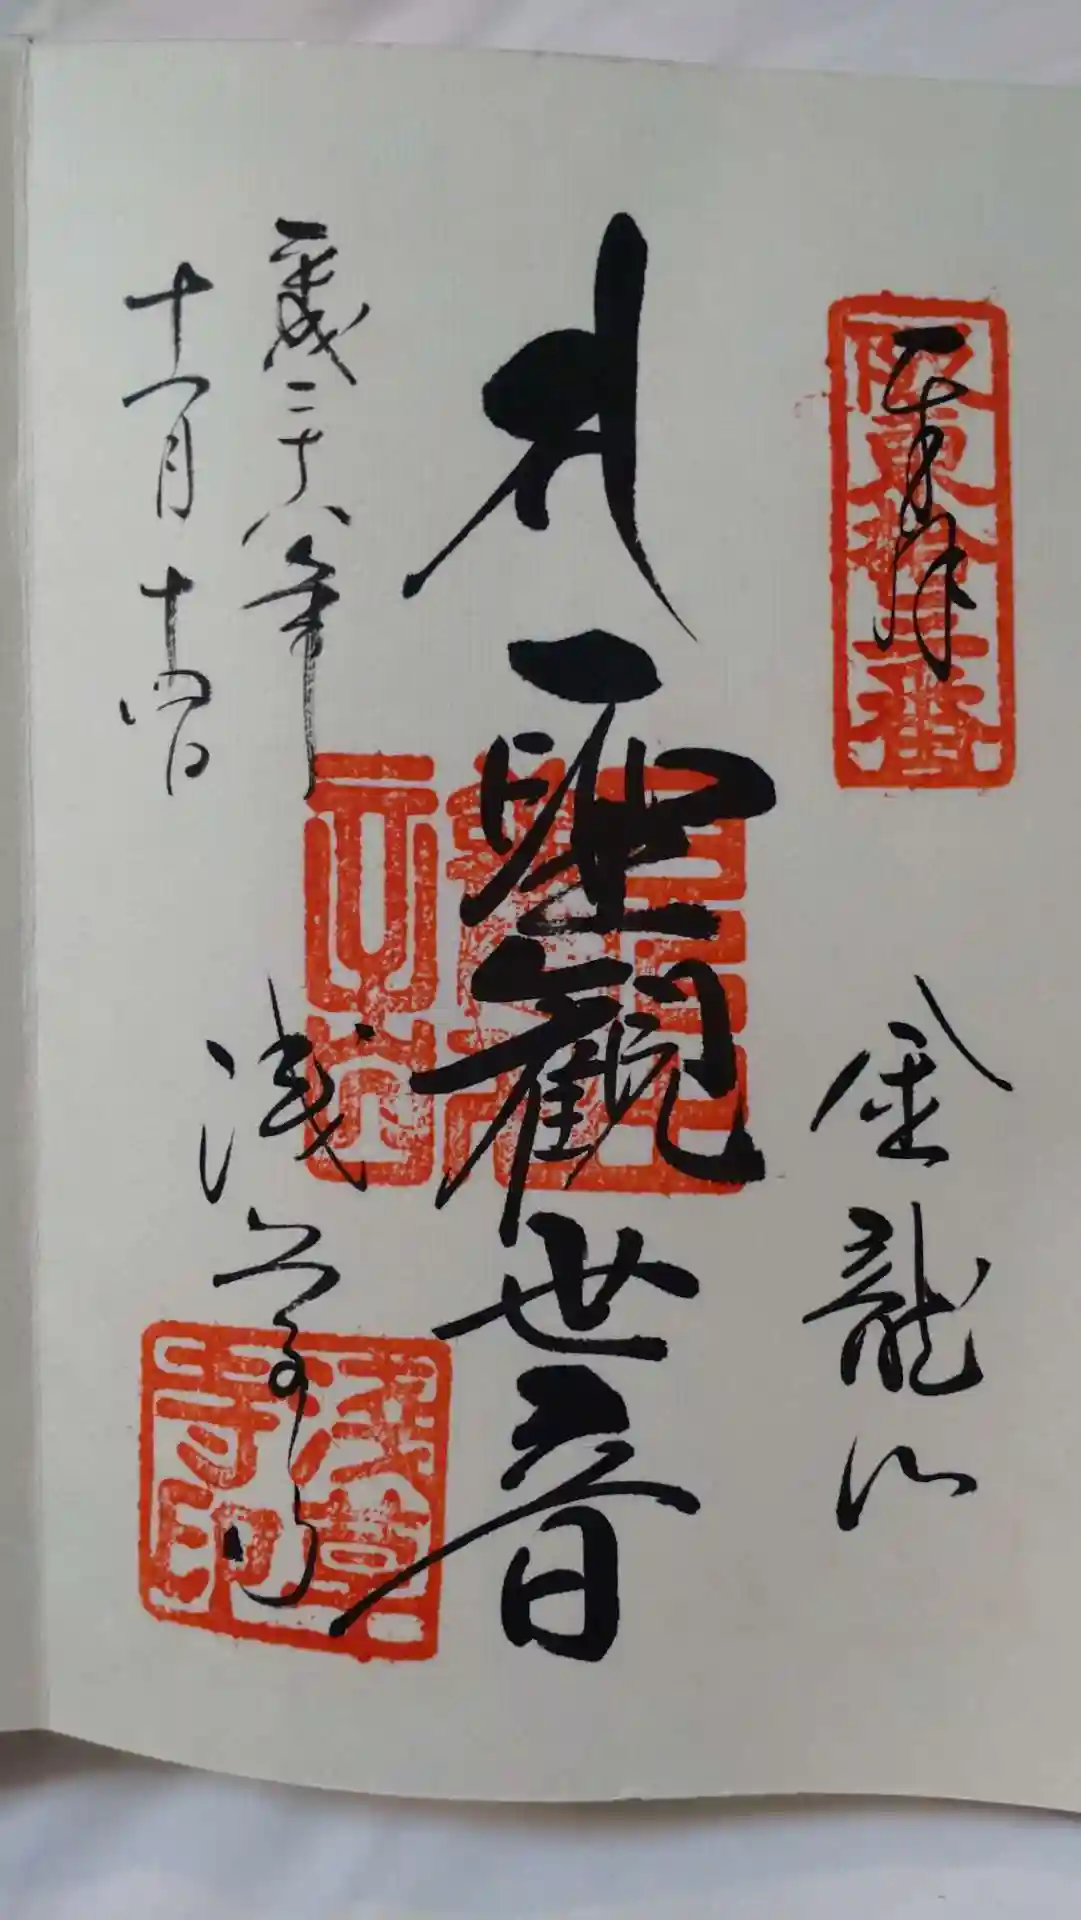 奉拝
阪東拾三番
金龍山
聖観世音
平成二十八年
十一月十四日
浅草寺
浅草寺印